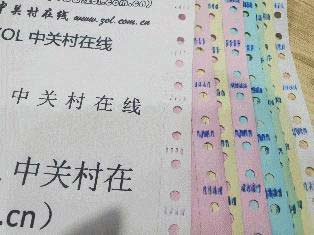 www.zol.com.cn)
中关村在线 www.zol.com.cn
ZOL 中关村在线
中关村在线
中关村在
.cn)